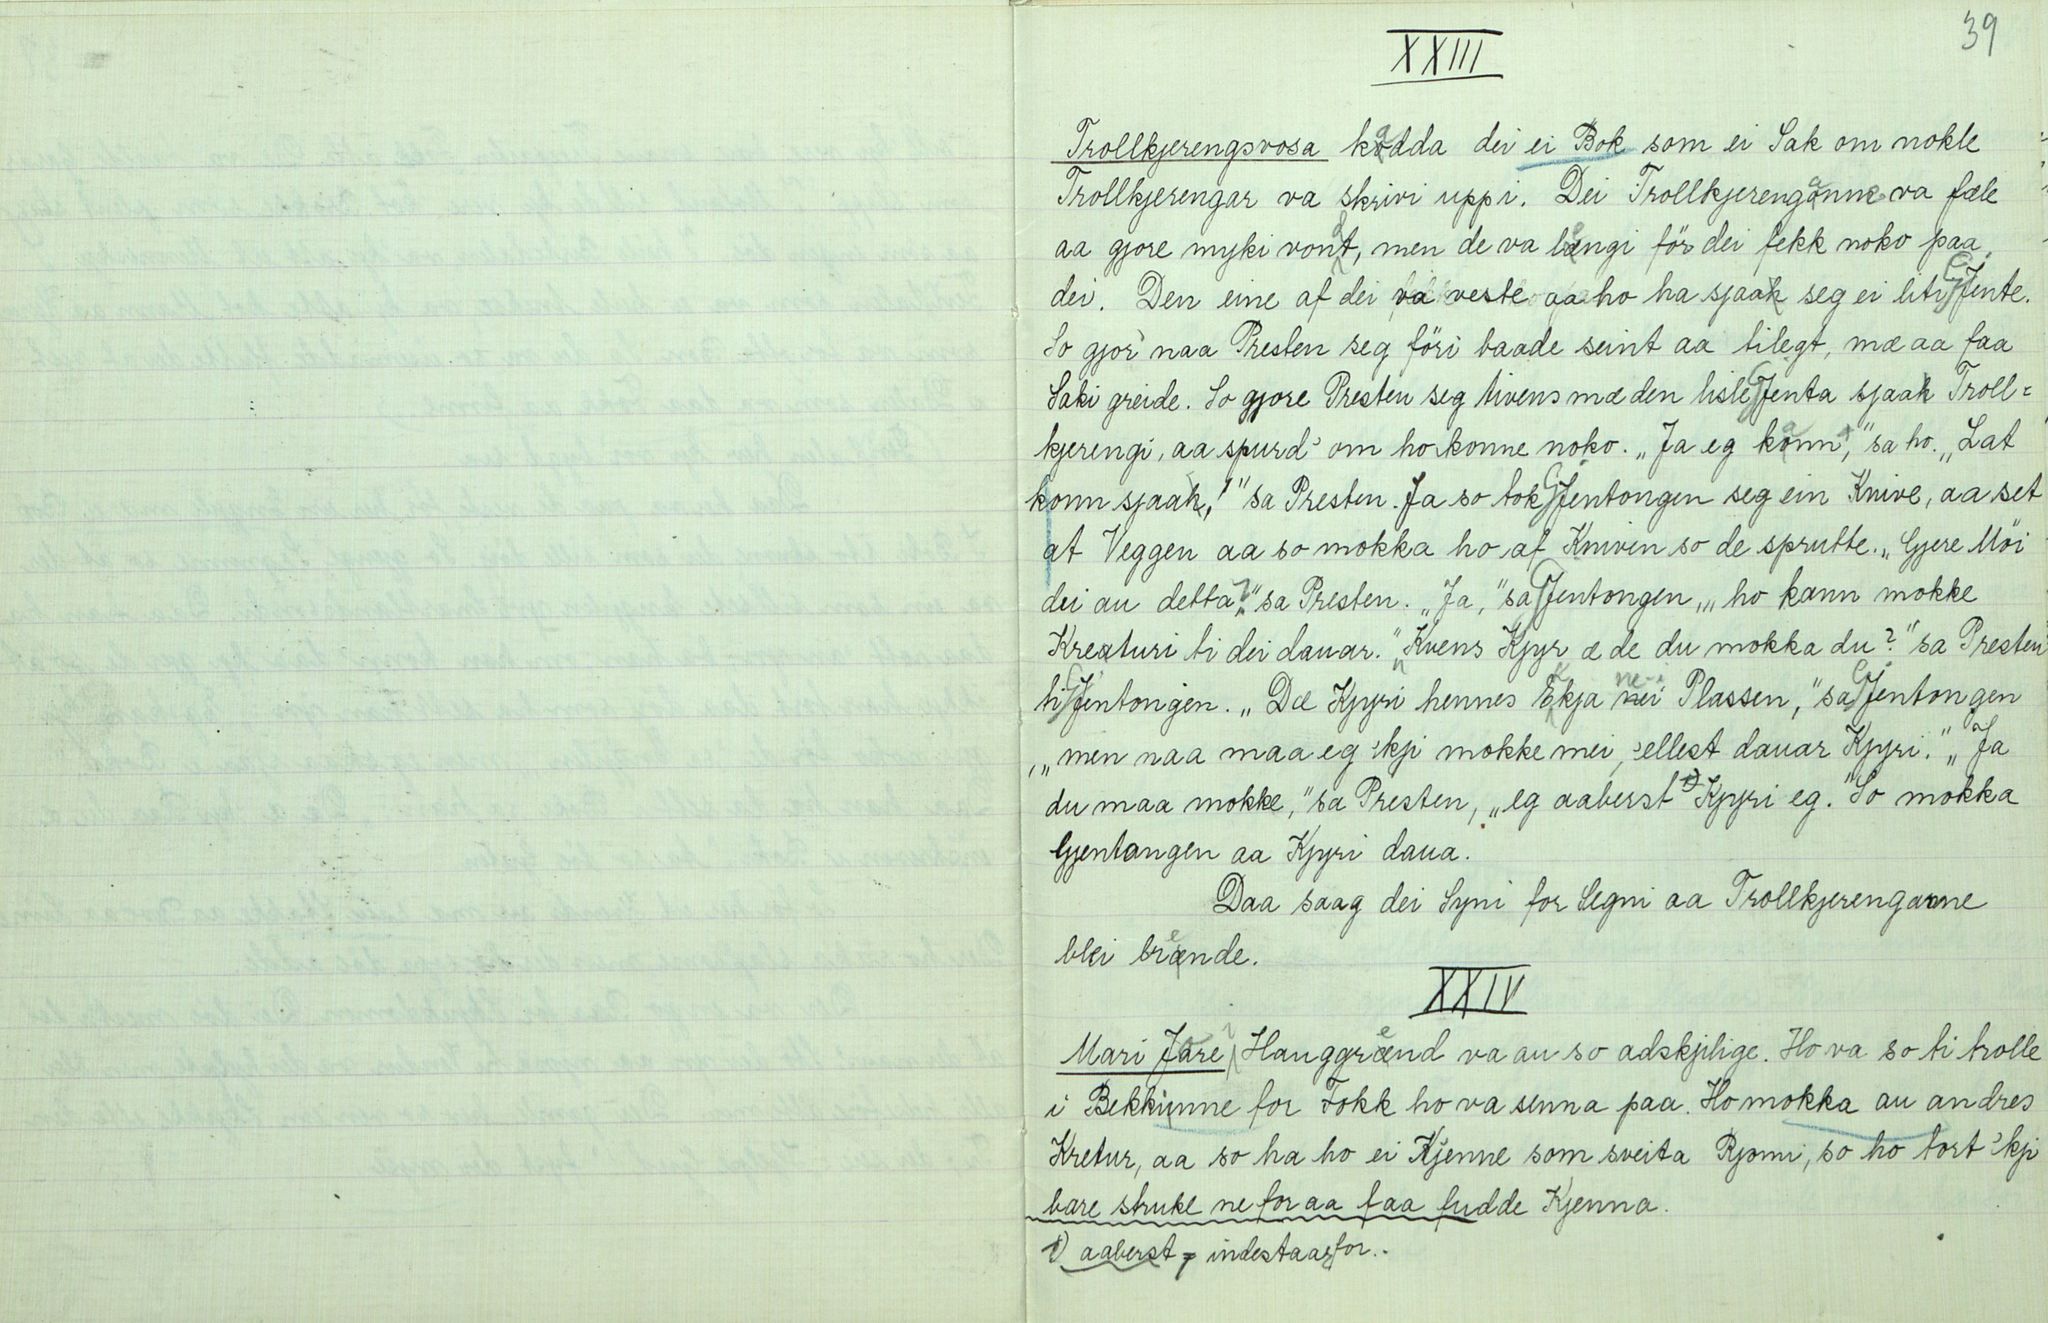 39
XXIII
Trollkjerengsvosa kadda dei ei Bok som ei Sak om nokle
Trollkjerengar va skrivi uppi. Dei Trollkjerenganne va fæle
aa gjore myki vondt, men de va lengi för dei fekk noko paa
dei. Den eine af dei va veste aa ho ha sjaa seg ei liti Gjente.
So gjor' naa Presten seg föri baade seint aa tilegt, mæ aa faa
Saki greide. So gjore Presten seg tivens mæ den lisle Gjenta sjaa Troll=
kjerengi, aa spurd' om ho konne noko. „Ja eg kann," sa ho. „Lat
konn sjaa!" sa Presten. Ja so tok Gjentongen seg ein Knive, aa set
at Veggen aa so mokka ho af Kniven so de sprutte. „Gjere Möi
dei au detta?" sa Presten. „Ja," sa Gjentongen, „ho kann mokke
Kreaturi ti dei dauar." „Kvens Kjyr æ de du mokka du?" sa Presten
ti Gjentongen. „Dæ Kjyri hennes Ekja ne i Plassen," sa Gjentongen
„men naa maa eg 'kji mokke mei, ellest dauar Kjyri." „Ja
du maa mokke," sa Presten, „eg aaberst 1) Kjyri eg." So mokka
Gjentangen aa Kjyri daua.
Daa saag dei Syni for Segni aa Trollkjerenganne
blei brende.
XXIV
Mari Jore i Hauggrend va au so adskjilige. Ho va so ti trolle
i Bekkjinne for Fokk ho va senna paa. Ho mokka au andres
Kretur, aa so ha ho ei Kjenne som sveita Rjomi, so ho tort 'kji
bare struke ne for aa faa fudde Kjenna.
1) aaberst = indestaar for.